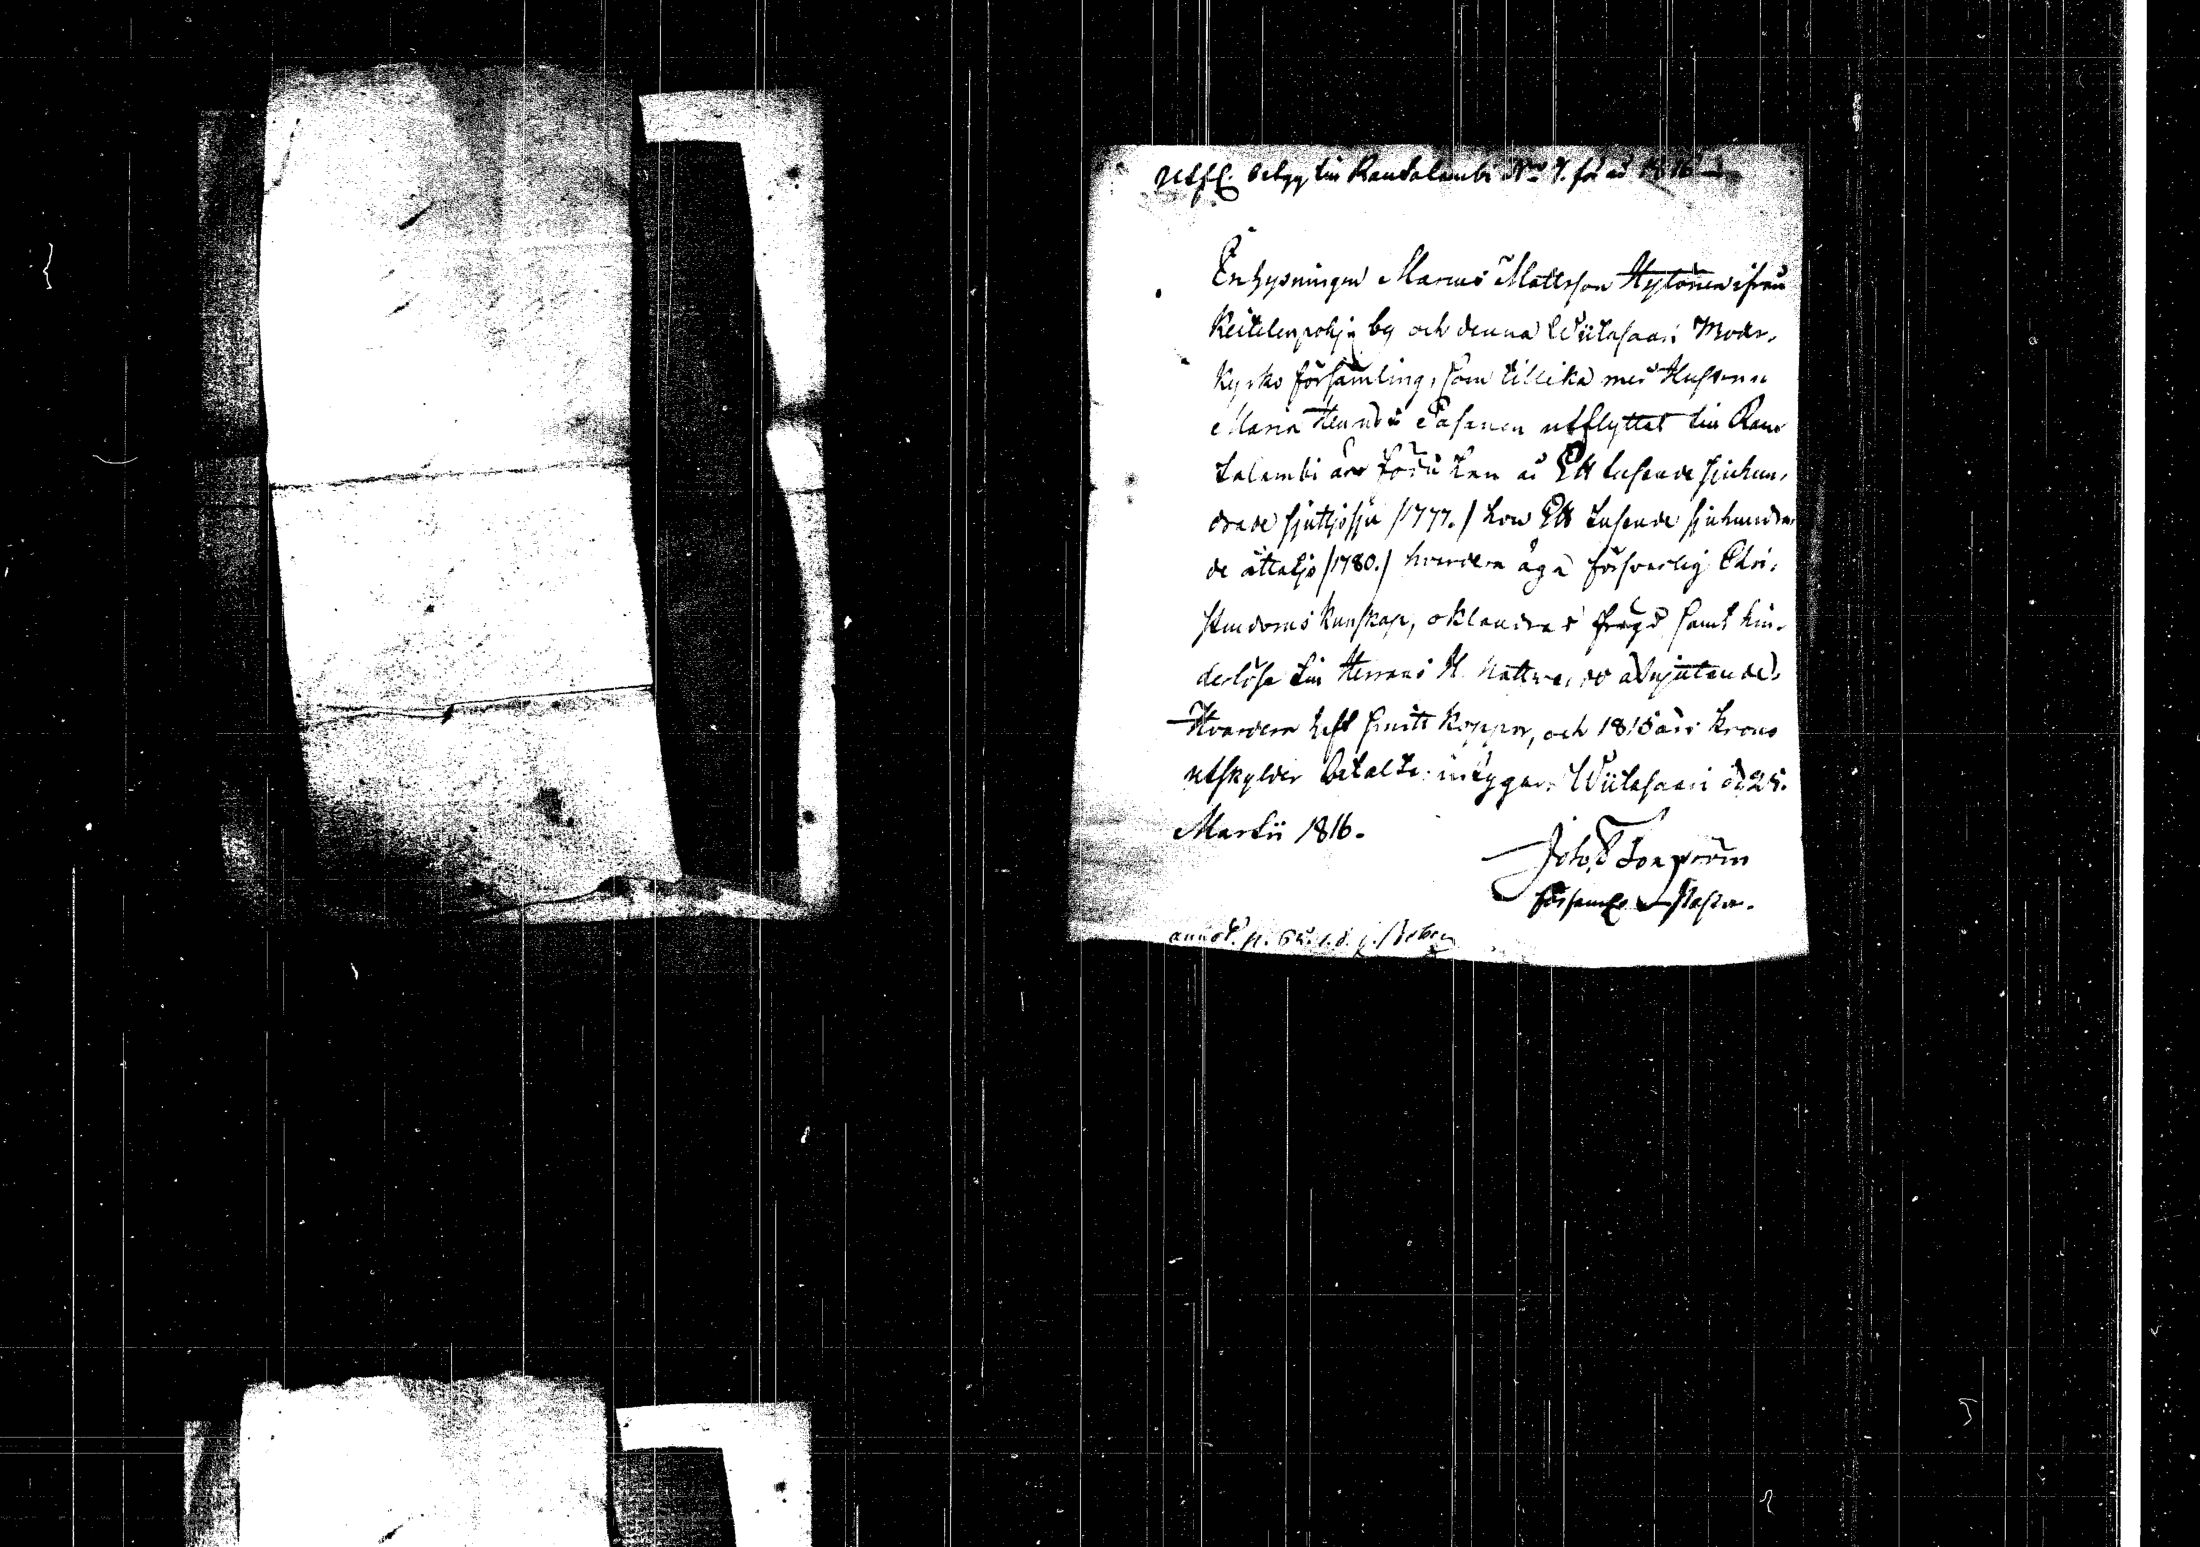 Utfl. betyg till Rautalambi No 7. för år 1816
Enhysningen Marcus Mattsson Hytönen ifrån
Keitelenpohja by och denna Wiitasaari Moder-
kyrko församling, som tillika med Hustrun
Maria Henrics Pasanen utflyttat till Rau-
talambi äro födde han år Ett tusende sjuhun-
drade sjutijosju /1777./ hon Ett tusende sjuhundra-
de åttatijo /1780./ hvardera äga försvarlig Chri-
stendoms kunskap, oklandrad frägd samt hin-
derlöse till Herrans H. Nattvard åtnjutande.
Hvardera haft smitt koppor, och 1815 års krono
utskylder betalte: intygar. Wiitasaari d 25.
Martii 1816.
Joh.
Församl. Pastor.
annot. p.